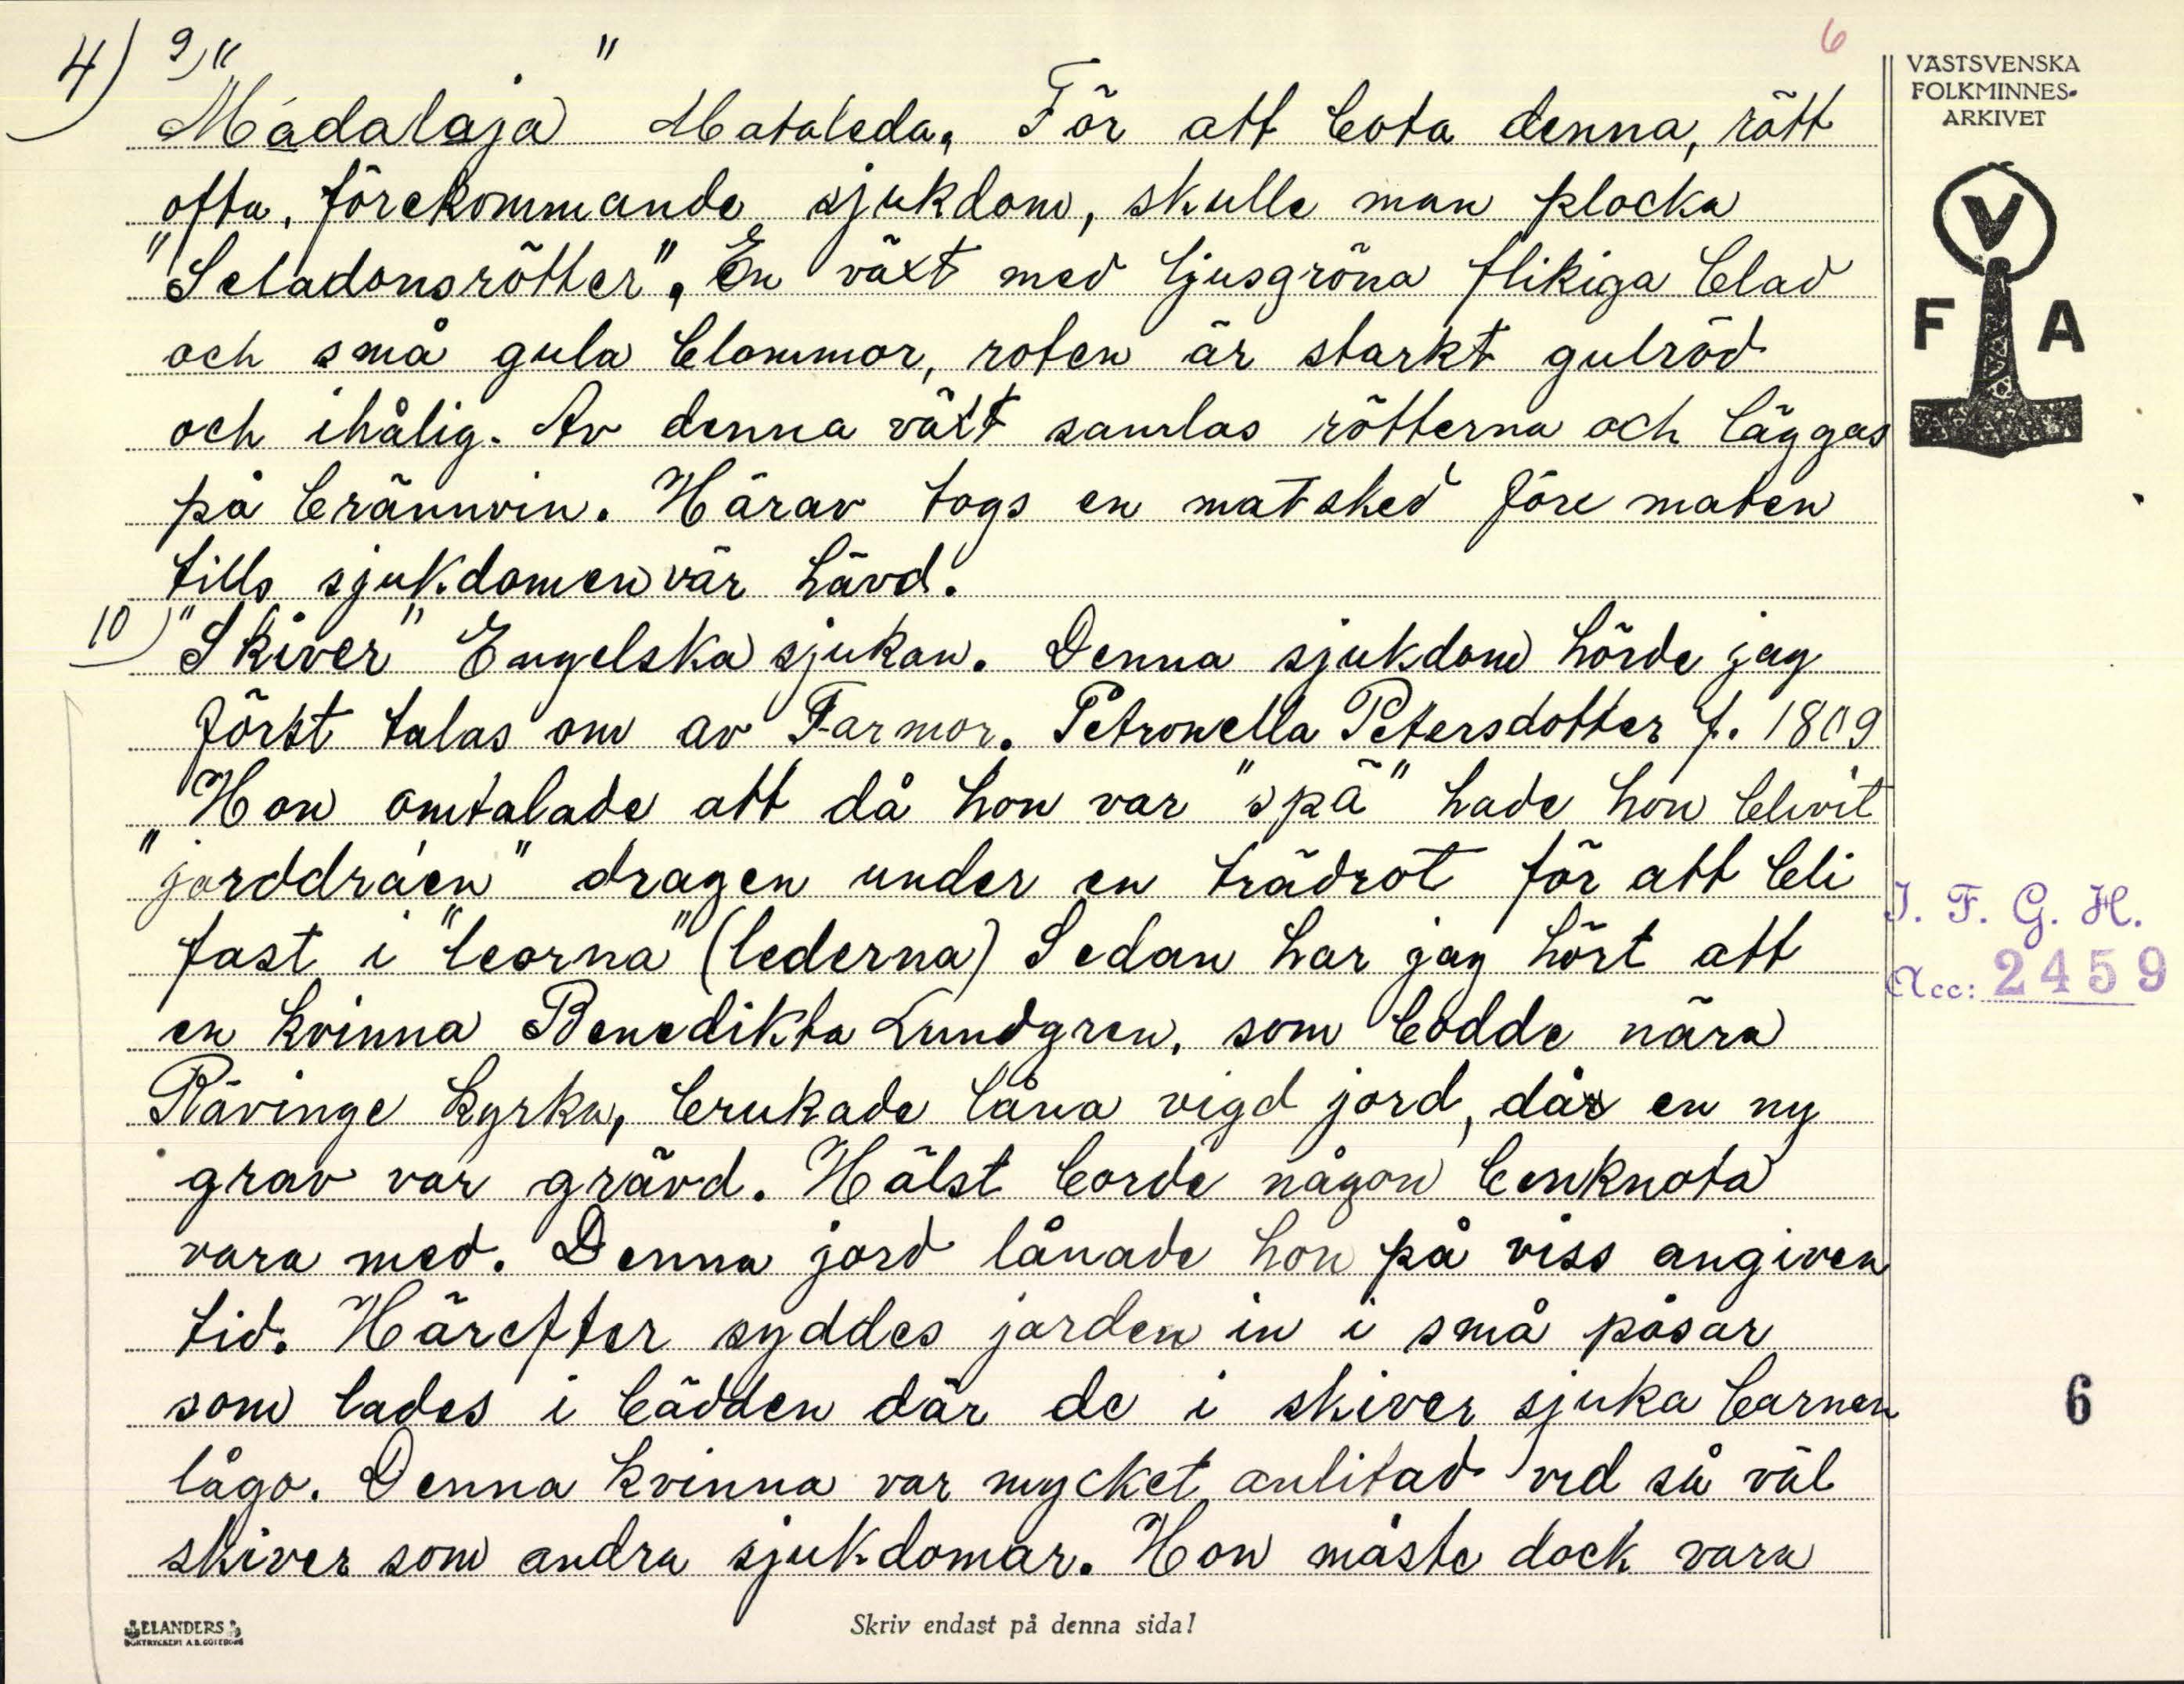 4) 9) "Mádalaja" Mataleda. För att bota denna, rätt
ofta, förekommande sjukdom, skulle man plocka
"Seladonsrötter". En växt med ljusgröna flikiga blad
och små gula blommor, roten är starkt gulröd
och ihålig. Av denna växt samlas rötterna och läggas
på brännvin. Härav togs en matsked före maten
tills sjukdomen var hävd.
10) "Skiver" Engelska sjukan. Denna sjukdom hörde jag
först talas om av Farmor. Petronella Petersdotter f. 1809
Hon omtalade att då hon var "spä" hade hon blivit
"jorddráen" dragen under en trädrot för att bli
fast i "leorna" (lederna) Sedan har jag hört att
en kvinna Benedikta Lundgren, som bodde nära
Rävinge kyrka, brukade låna vigd jord, där en ny
grav var grävd. Hälst borde någon benknota
vara med. Denna jord lånade hon på viss angiven
tid. Härefter syddes jorden in i små påsar
som lades i bädden där de i skiver sjuka barnen
lågo. Denna kvinna var mycket anlitad vid så väl
skiver som andra sjukdomar. Hon måste dock vara
6
VÄSTSVENSKA
FOLKMINNES-
ARKIVET
V
F A
I. F. G. H.
Acc: 2459
6
ELANDERS
BOKTRYCKERI A.B. GÖTEBORG
Skriv endast på denna sida!